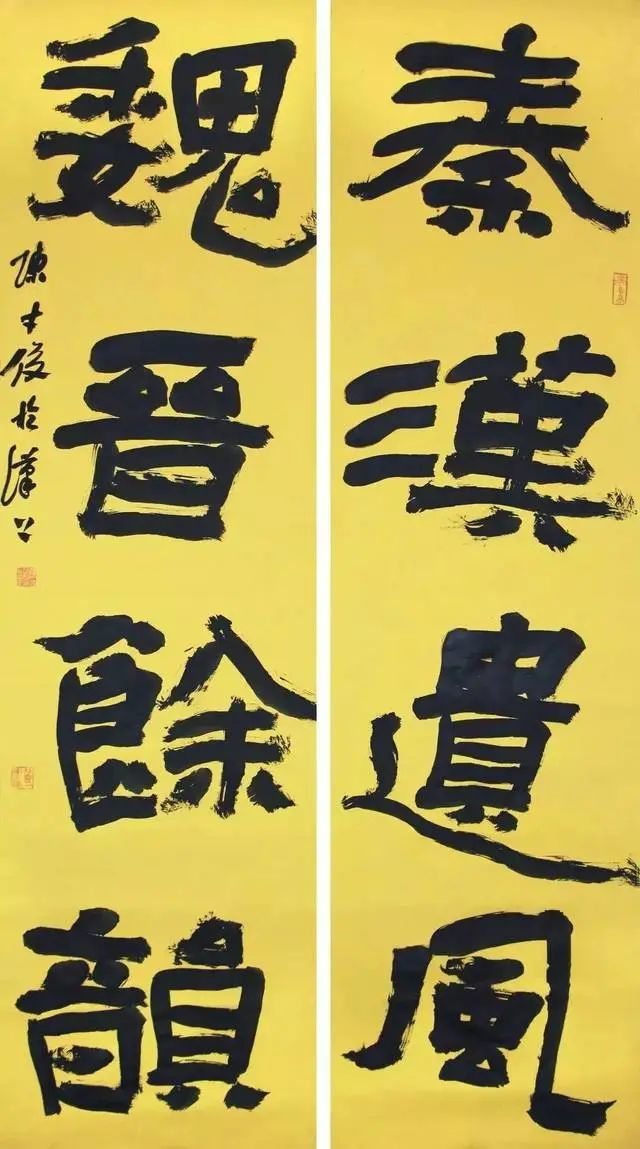 秦漢遺風
魏晉餘韻
陳士俊於漢上